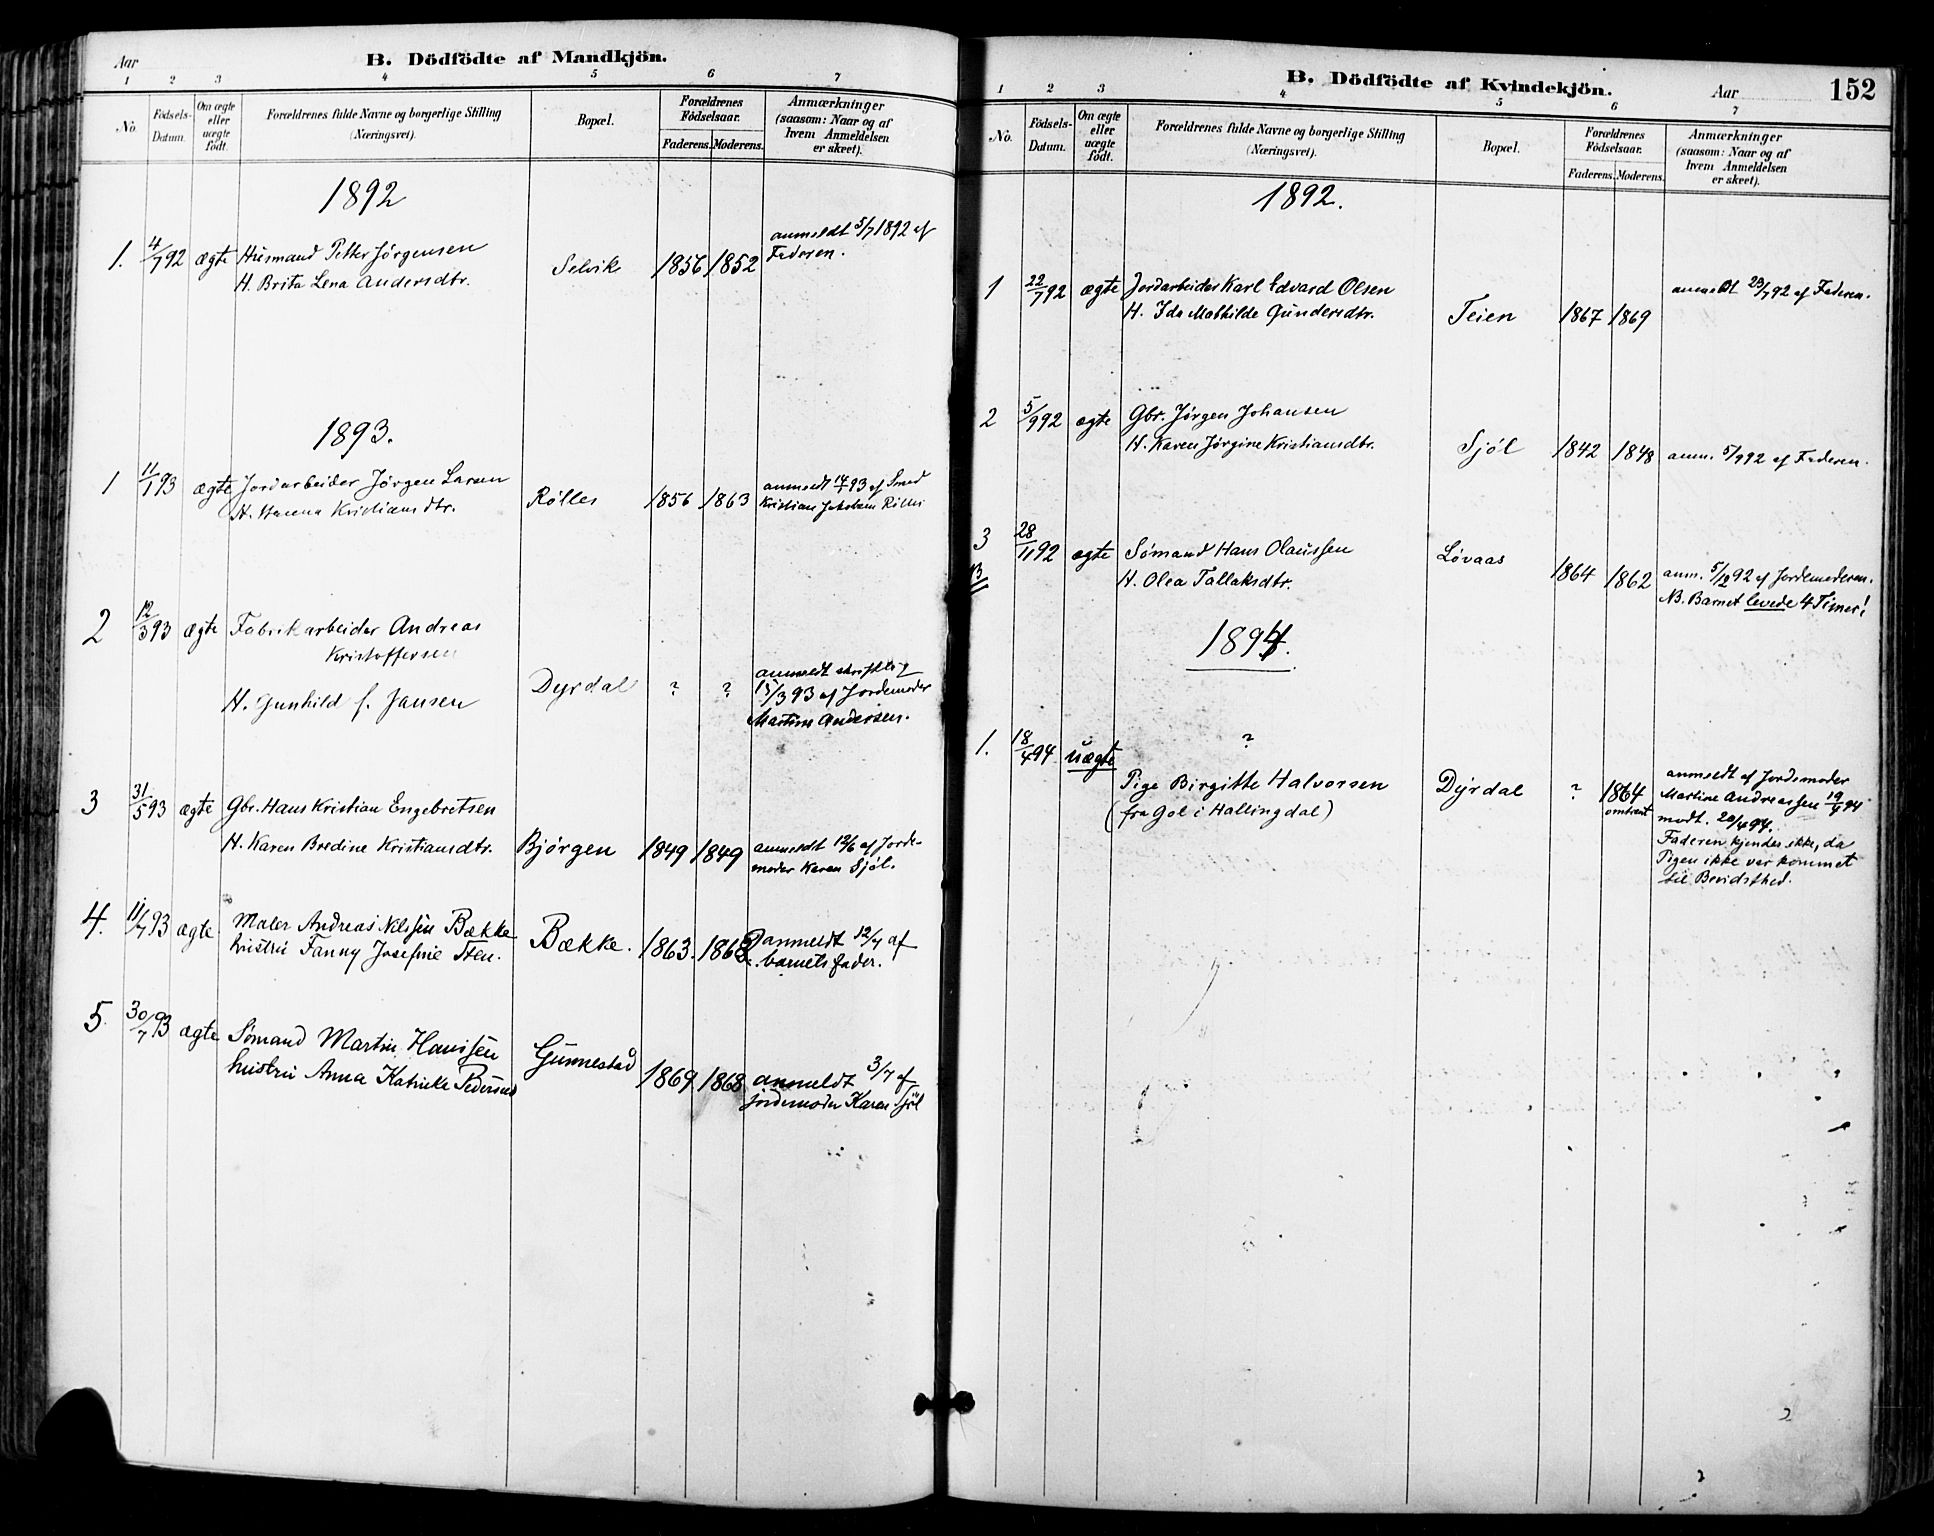 Aar
B. Dödfödte af Mandkjön.
1 2 3 4 5 6 7
No.
Födsels-
Datum.
Om ægte
eller
uægte
födt.
Forældrenes fulde Navne og borgerlige Stilling
(Næringsvei).
Bopæl.
Forældrenes
Födselsaar.
Faderens. Moderens.
Anmærkninger
(saasom: Naar og af
hvem Anmeldelsen
er skeet).
1892
1. 4/7 92 ægte Husmand Petter Jørgensen
H. Brita Lena Andersdtr.
Selvik 1856 1852
anmeldt 5/7 1892 af
Faderen.
1893.
1 11/1 93 ægte Jordarbeider Jørgen Larsen
H. Kristiansdtr.
Rølles 1856 1863
anmeldt 93 af Smed
Kristian Jakobsen
2 12/3 93 ægte Fabrikarbeider Andreas
Kristoffersen
H. Gunhild f. Jansen
Dyrdal ? ?
anmeldt skriftlig
15/3 93 af Jordemoder
Martine Andersen.
3 31/5 93 ægte Gbr. Hans Kristian Engebretsen
H. Karen Bredine Kristiansdtr.
Bjørgen 1849 1849
anmeldt 12/6 af Jorde-
moder Karen Sjøl.
4. 11/7 93 ægte Maler Andreas Nilssen Bække
hustru Fanny Josefine Sten.
Bække. 1863. 1868
anmeldt 12/7 af
barnets fader.
5. 30/7 93 ægte Sømand Martin Hanssen
hustru Anna Katrine Pedersen
Gunnestad 1869. 1868
anmeldt 3/7 af
jordemoder Karen Sjøl
B. Dödfödte af Kvindekjön.
Aar
152
1 2 3 4 5 6 7
No.
Födsels-
Datum.
Om ægte
eller
uægte
födt.
Forældrenes fulde Navne og borgerlige Stilling
(Næringsvei).
Bopæl.
Forældrenes
Födselsaar.
Faderens. Moderens.
Anmærkninger
(saasom: Naar og af
hvem Anmeldelsen
er skeet).
1892.
1 22/7 92 ægte Jordarbeider Karl Edvard Olsen
H. Ida Mathilde Gundersdtr.
Teien 1867 1869
anmeldt 23/7 92 af Faderen.
2 5/9 92 ægte Gbr. Jørgen Johansen
H. Karen Jørgine Kristiansdtr.
Sjøl 1842 1848 anm. 5/9 92 af Faderen.
3 28/11 92 ægte Sømand Hans Olaussen
H. Olea Tallaksdtr.
Løvaas 1864 1862
anm. 5/12 92 af Jordemoderen.
NB. Barnet levede 4 Timer!
1894.
1. 18/4 94 uægte ?
Pige Birgitte Halvorsen
(fra Gol i Hallingdal)
Dyrdal ? 1864
omtrent
anmeldt af Jordemoder
Martine Andreassen 19/4 94
modt. 20/4 94.
Faderen kjendes ikke, da
Pigen ikke var kommet
til Bevidsthed.